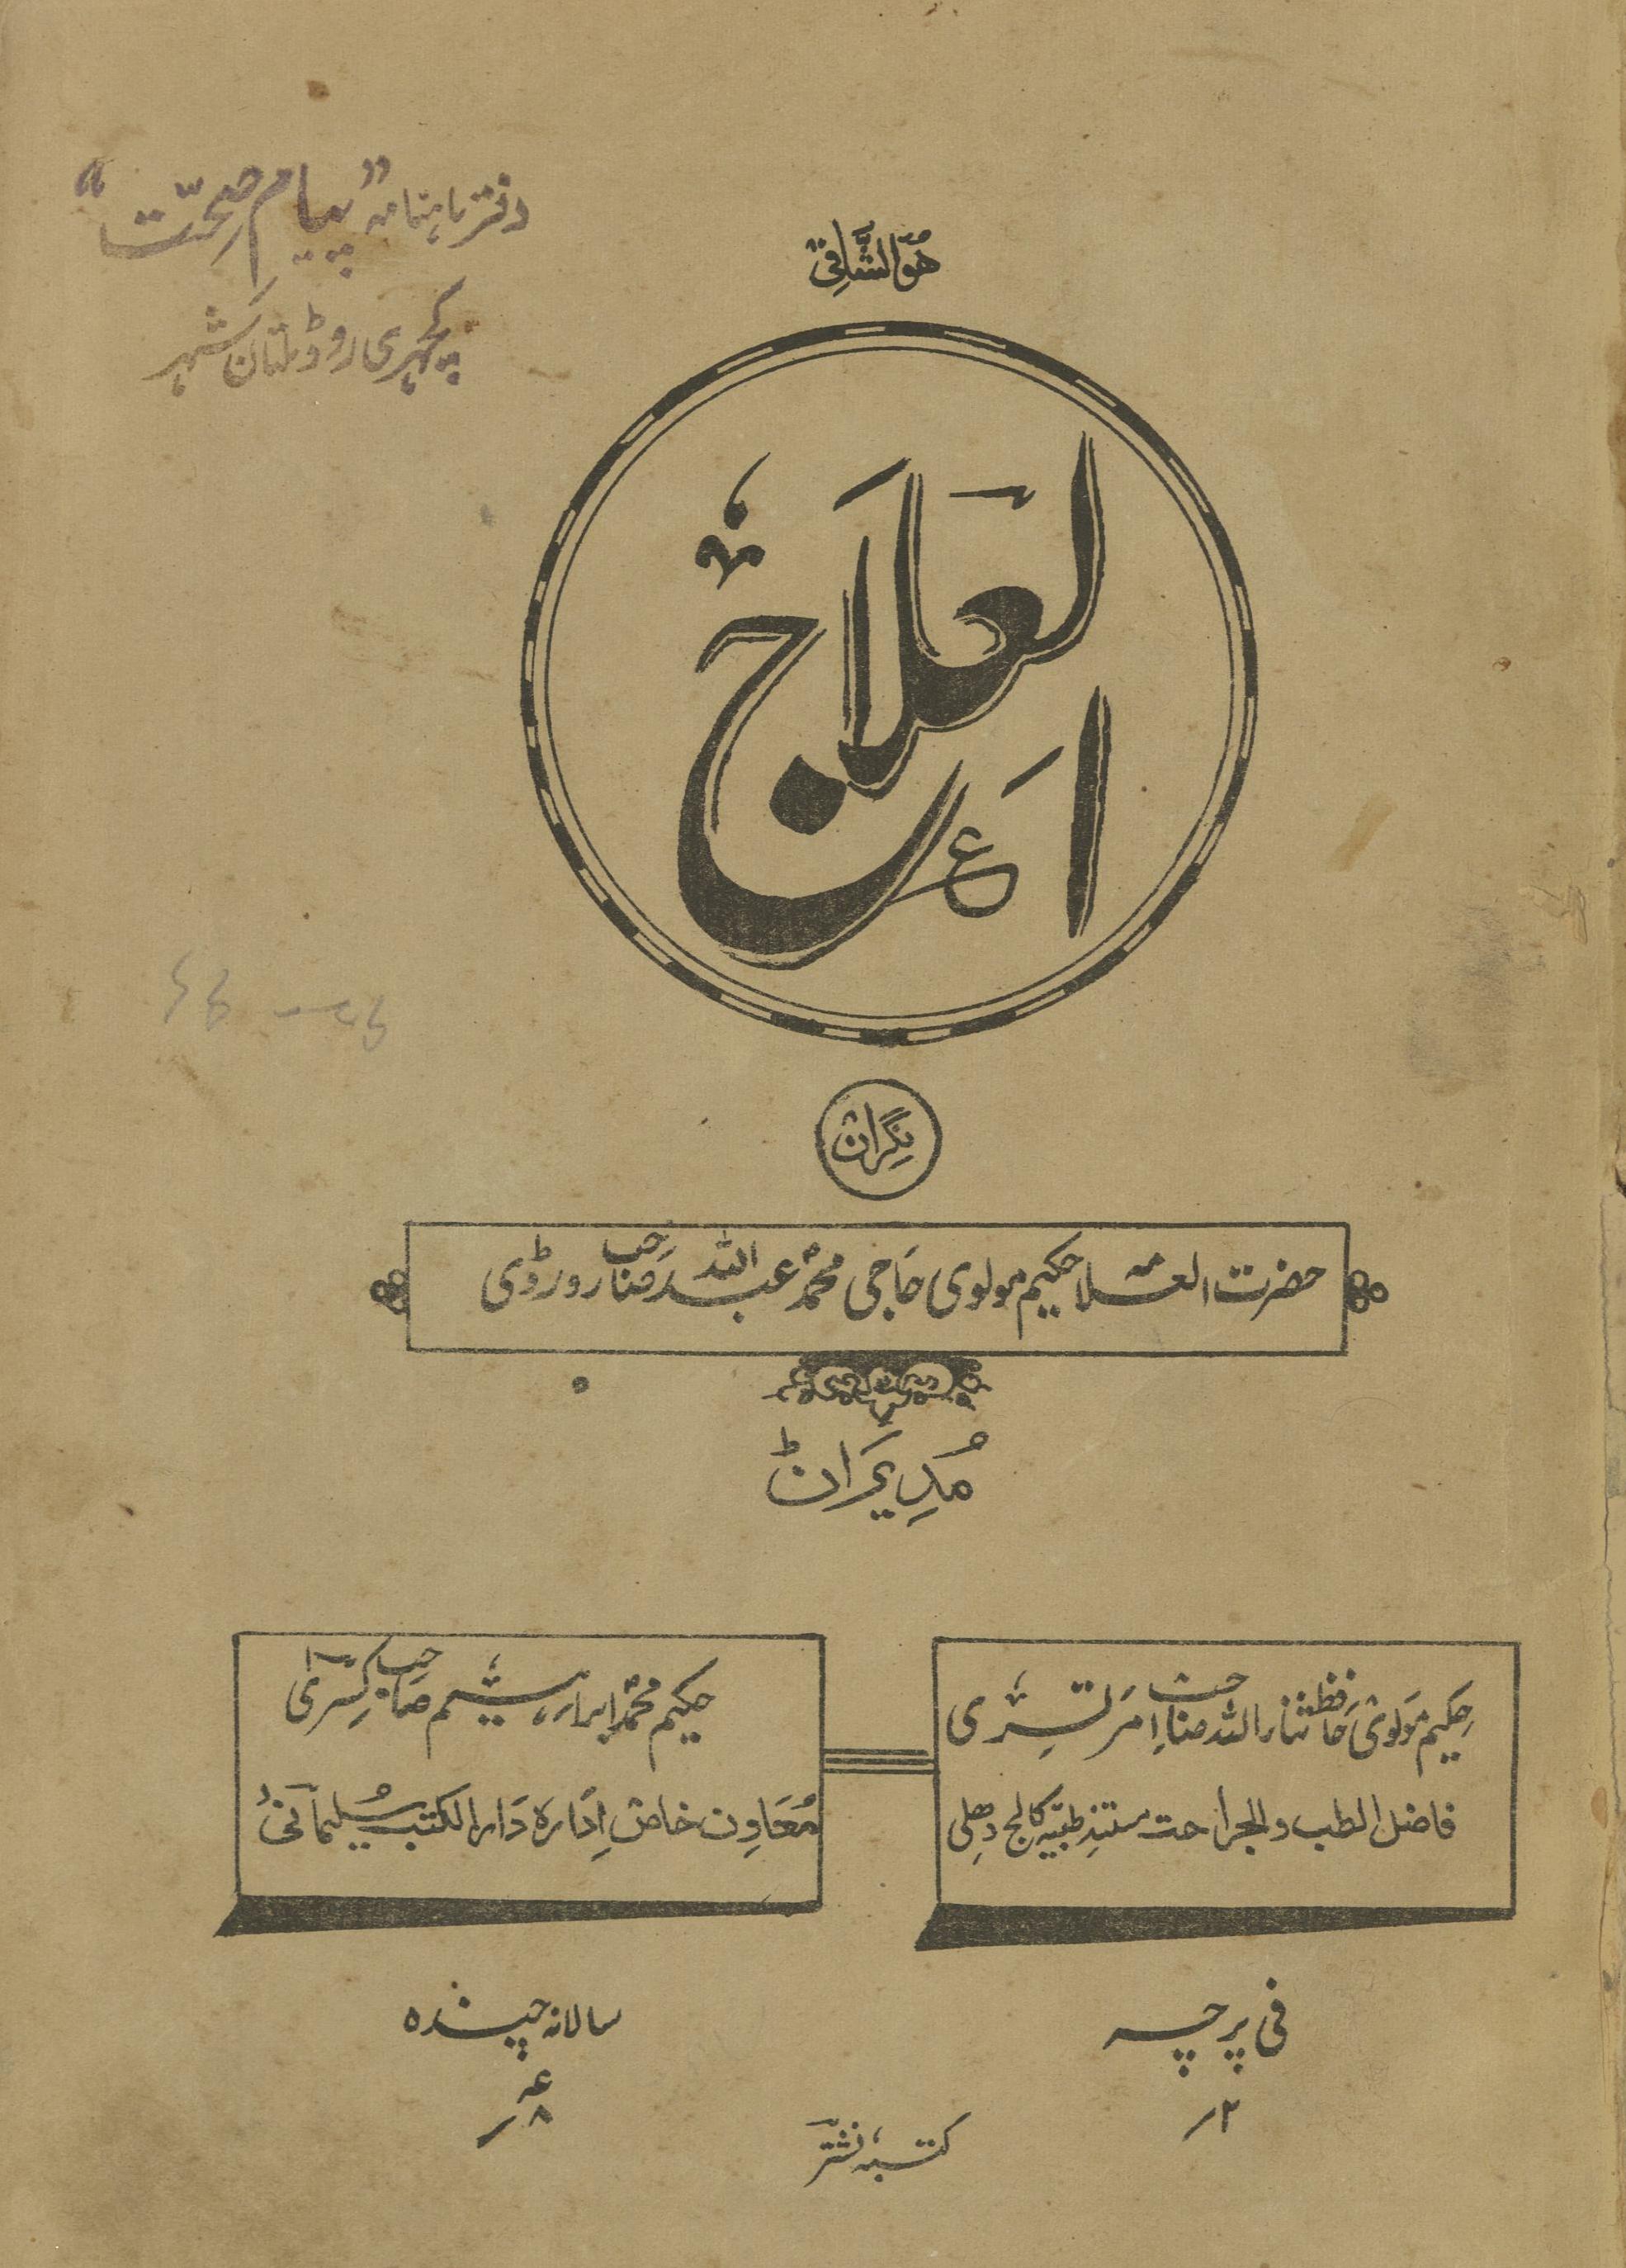 دفتر ماہنامہ "پیام صحت"
کچہری روڈ ملتان شہر
ھو الشافی
العلاج
نگران
حضرت العلامہ حکیم مولوی حاجی محمد عبد اللہ صاحب روڑوی
مدیران
حکیم مولوی حافظ ثناء اللہ صاحب امرتسری
فاضل الطب والجراحت مستند طبیہ کالج دھلی
حکیم محمد ابراہیم صاحب
معاون خاص ادارہ دار الکتب سلیمانی
فی پرچہ
۲؍
سالانہ چندہ
۸؍
کتبہ نشتر